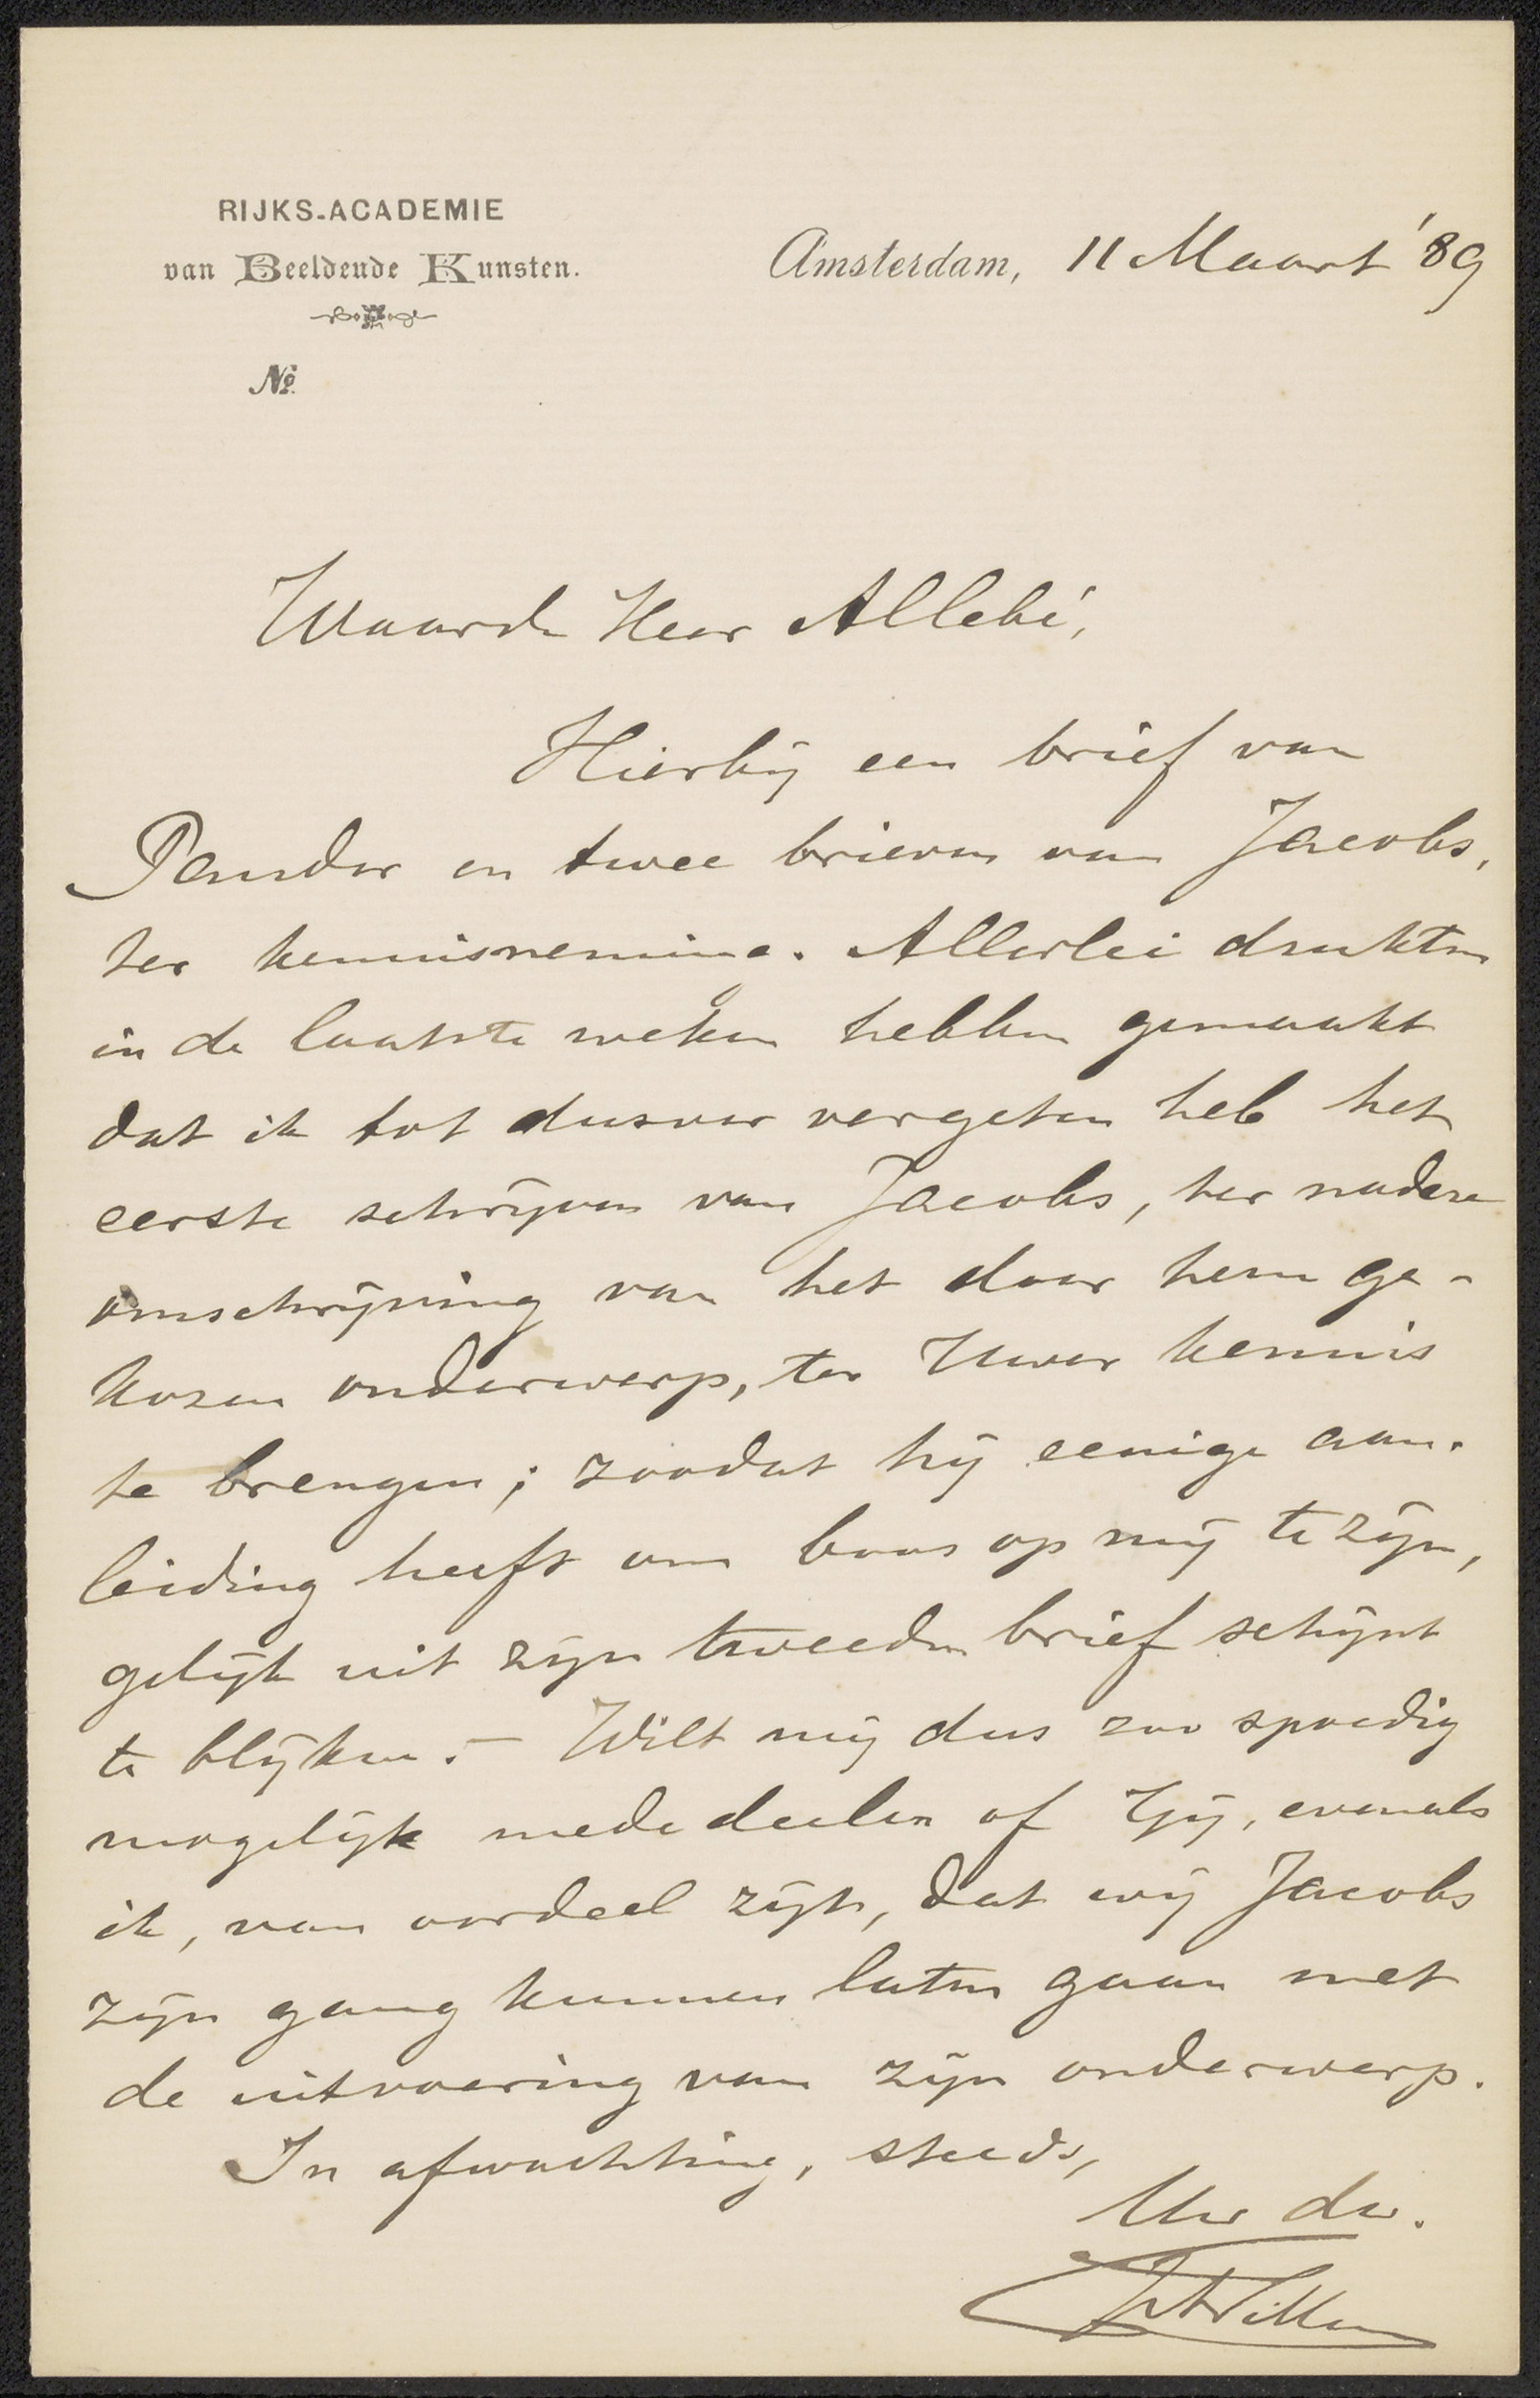 RIJKS-ACADEMIE
van Beeldende Kunsten.
Amsterdam, 11 Maart '89
No.
Waarde Heer Allebé,
Hierbij een brief van
Pander en twee brieven van Jacobs,
ter kennisneming. Allerlei drukten
in de laatste weken hebben gemaakt
dat ik tot dusver vergeten heb het
eerste schrijven van Jacobs, ter nadere
omschrijving van het door hem ge-
kozen onderwerp, ter Uwer kennis
te brengen; zoodat hij eenige aan-
leiding heeft om boos op mij te zijn,
gelijk uit zijn tweeden brief schijnt
te blijken. — Wilt mij dus zoo spoedig
mogelijk mededeelen of Gij, evenals
ik, van oordeel zijt, dat wij Jacobs
zijn gang kunnen laten gaan met
de uitvoering van zijn onderwerp.
In afwachting, steeds,
Uw dw.